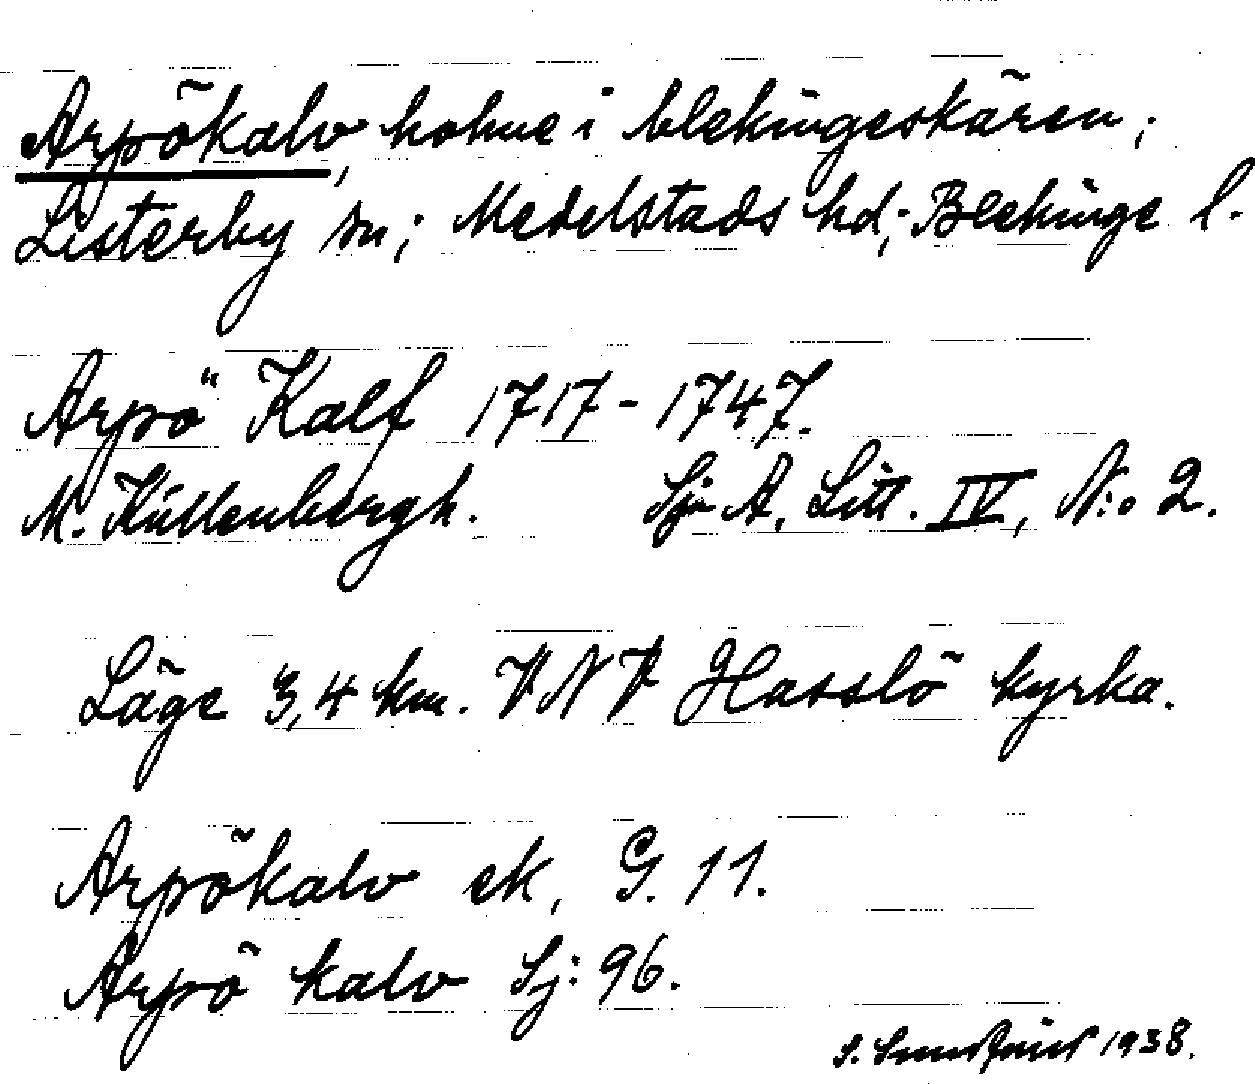 Arpökalv, holme i blekingeskären;
Listerby sn; Medelstads hd; Blekinge l.
Arpö Kalf 1717-1747.
M. Küllenbergh. Sjö A, Litt. IV, N:o 2.
Läge 3,4 km. VNV Hasslö kyrka.
Arpökalv ek, G. 11.
Arpö kalv Sj: 96.
S. 1938.